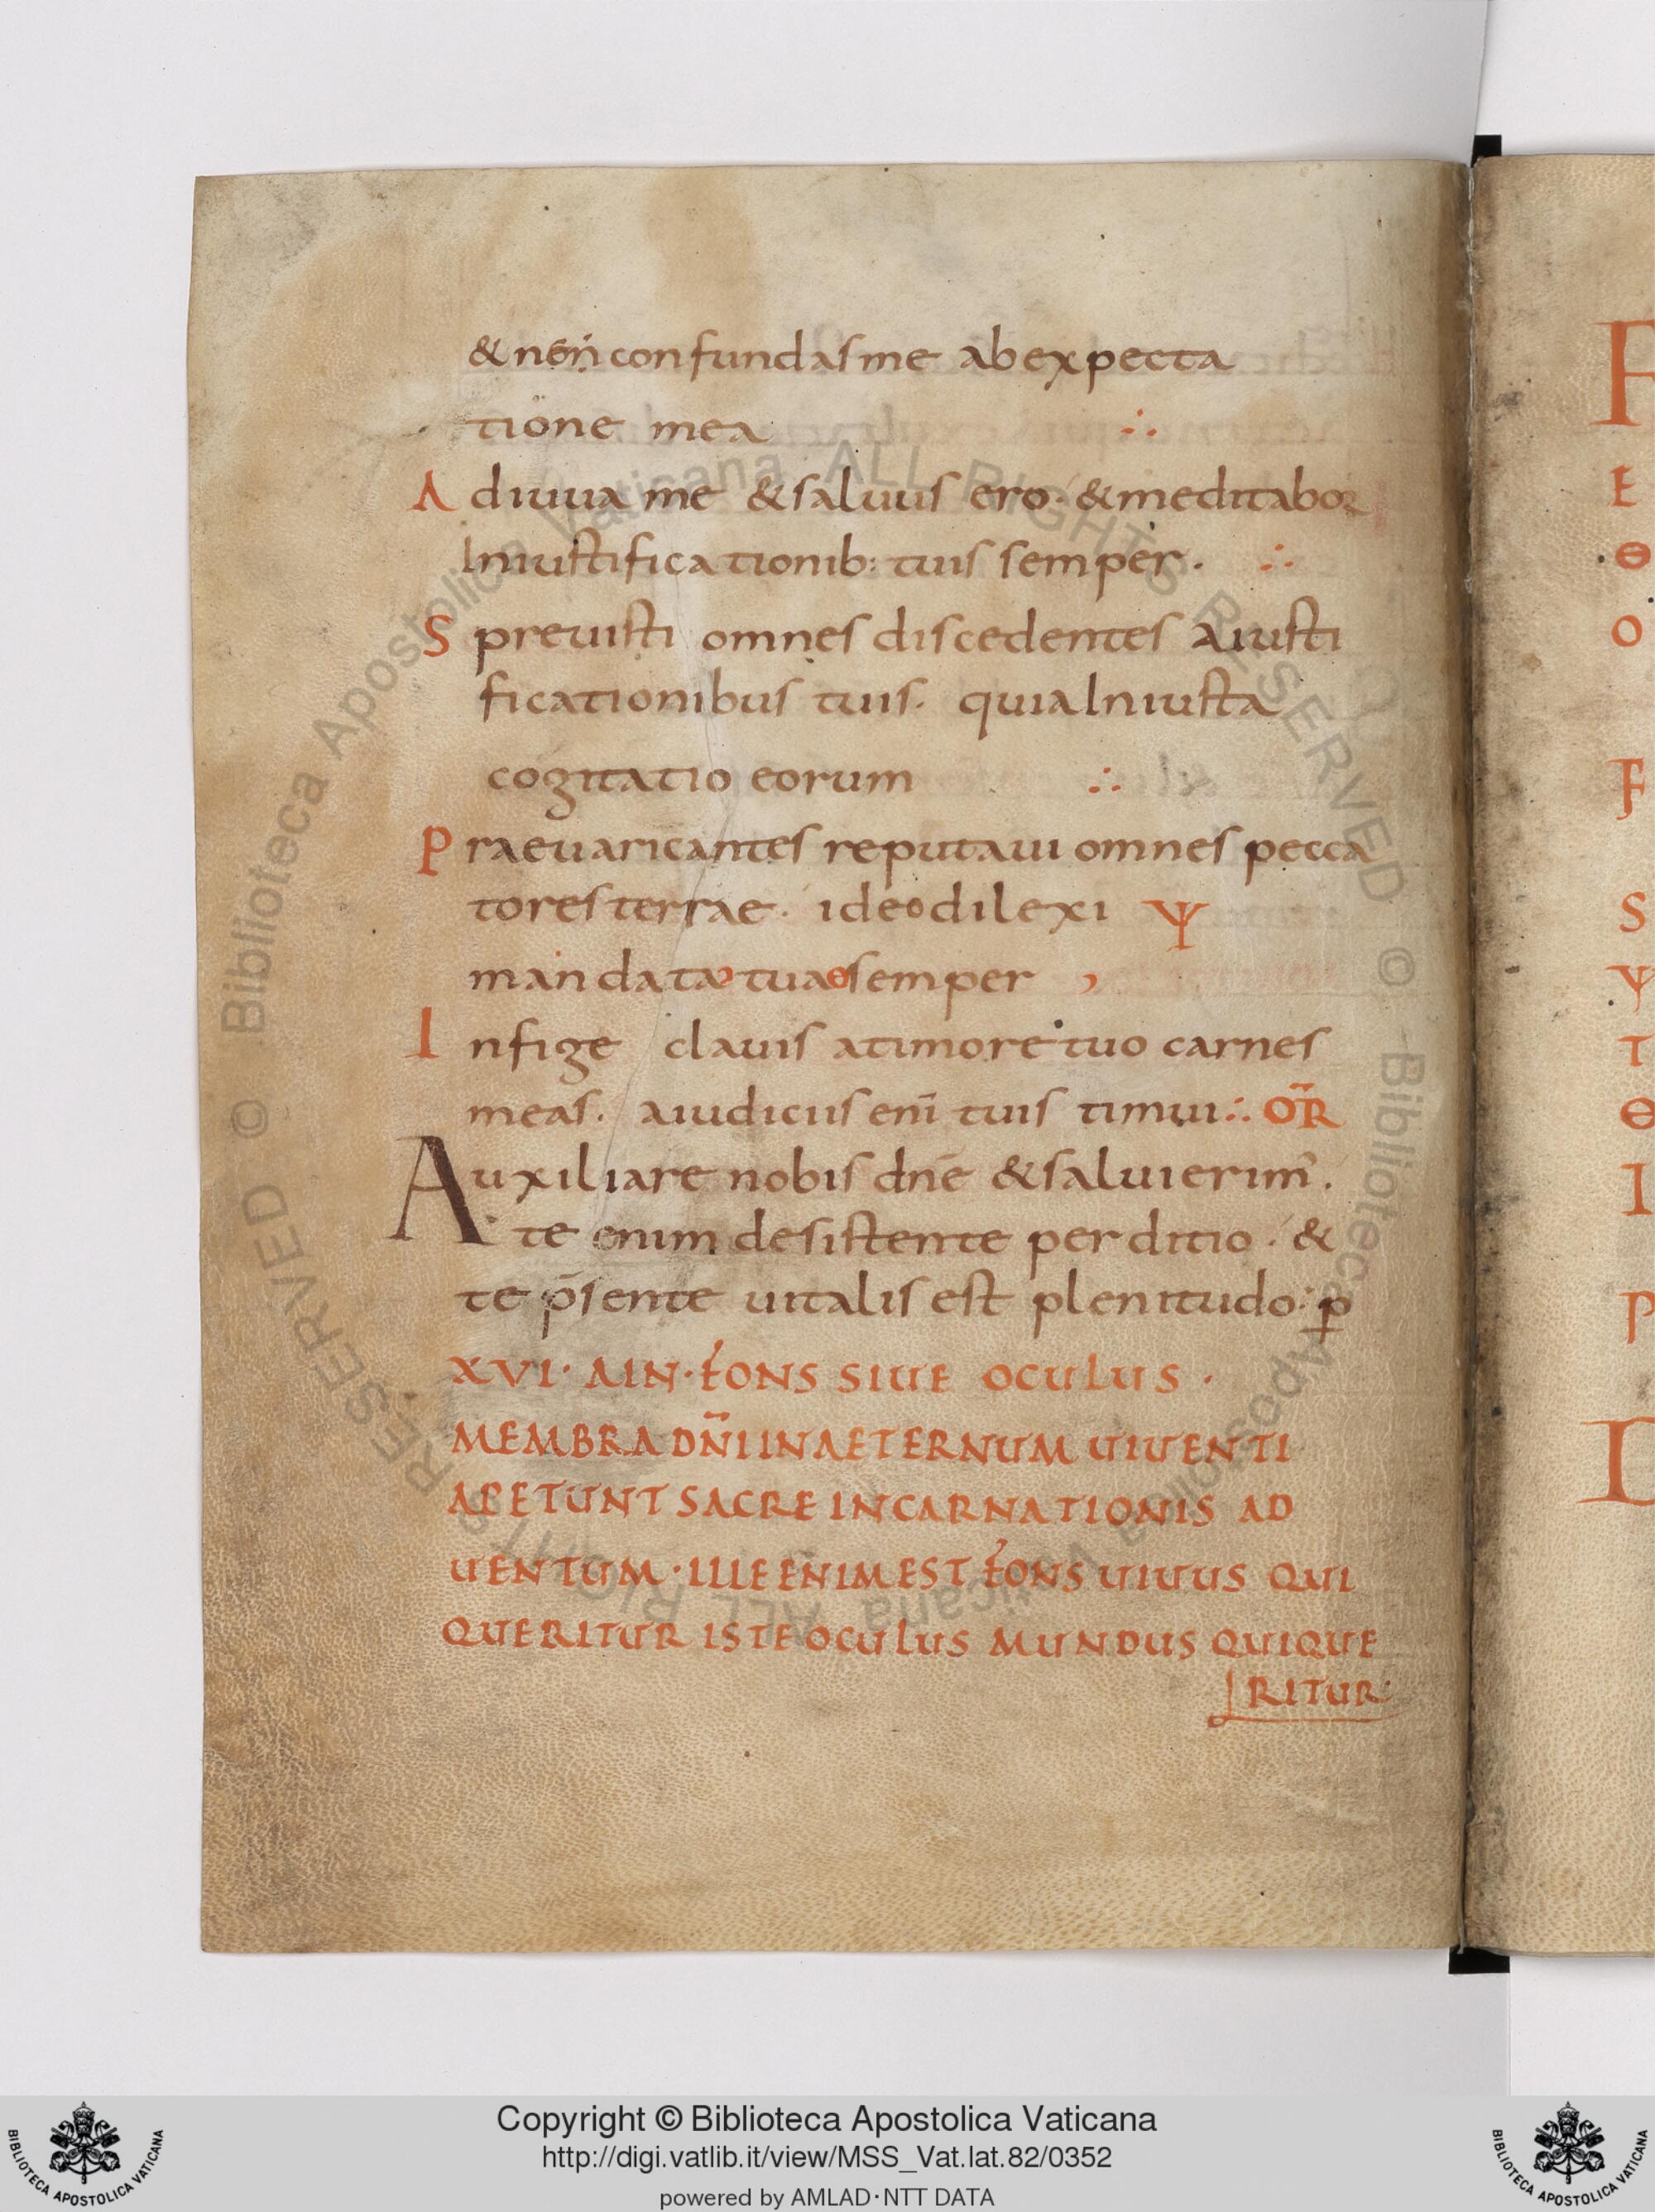 & non confundas me ab expecta
tione mea ∴
A diuua me & saluus ero · & meditabor
In iustificationib: tuis semper · ∴
S preuisti omnes discedentes a iusti
ficationibus tuis · quia Iniusta
cogitatio eorum ∴
P raeuaricantes reputaui omnes pecca
tores terrae · ideo dilexi Ψ
mandata tua semper
I nfige clauis a timore tuo carnes
meas · a iudiciis enī tuis timui ∴ OR̄
Auxiliare nobis dn̄e & salui erim̄ ·
te enim desistente perditio · &
te p̄sente uitalis est plenitudo : ꝑ
XVI · AIN · FONS SIUE OCULUS ·
MEMBRA DN̄I IN AETERNUM UIUENTI
APETUNT SACRE INCARNATIONIS AD
UENTUM · ILLE ENIM EST FONS UIUUS QUI
QUERITUR ISTE OCULUS MUNDUS QUI QUE
RITUR
E
Θ
O
F
S
Ψ
T
Θ
I
P
Copyright © Biblioteca Apostolica Vaticana
http://digi.vatlib.it/view/MSS_Vat.lat.82/0352
powered by AMLAD·NTT DATA
BIBLIOTECA APOSTOLICA VATICANA
BIBLIOTECA APOSTOLICA VATICANA
© Biblioteca Apostolica Vaticana ALL RIGHTS RESERVED
© Biblioteca Apostolica Vaticana ALL RIGHTS RESERVED